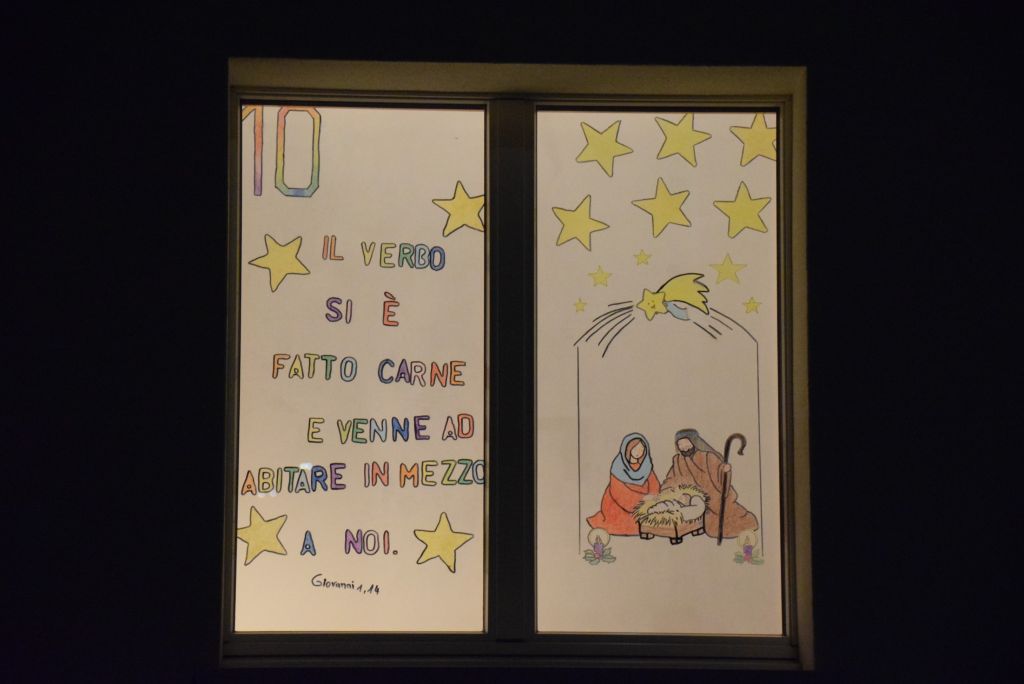 10
IL VERBO
SI È
FATTO CARNE
E VENNE AD
ABITARE IN MEZZO
A NOI.
Giovanni 1,14